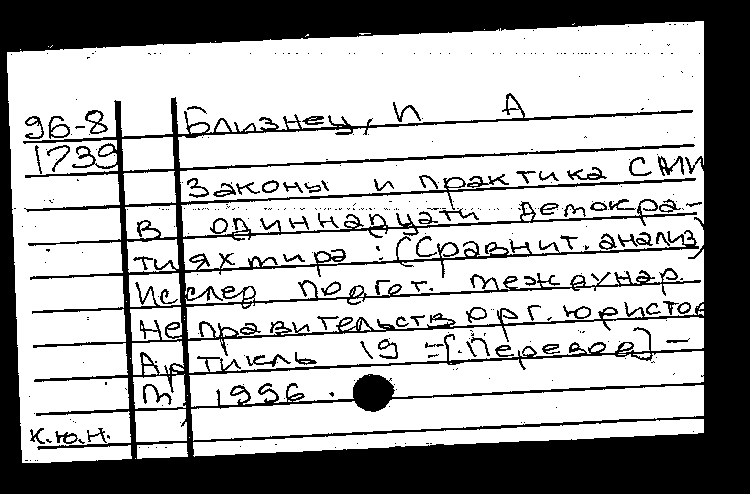 96-8 Близнец, И А
1739
Законы и практика СМИ
в одиннадцати демокра-
тиях мира : (Сравнит. анализ)
Исслед подгот. междунар.
неправительств орг. юристов
Артикль 19 =[.Перевод] -
М. 1996 .
К.Ю.Н.